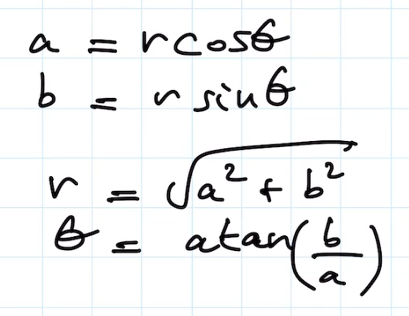 a = r cosθ
b = r sinθ
r = √(a² + b²)
θ = atan(b/a)